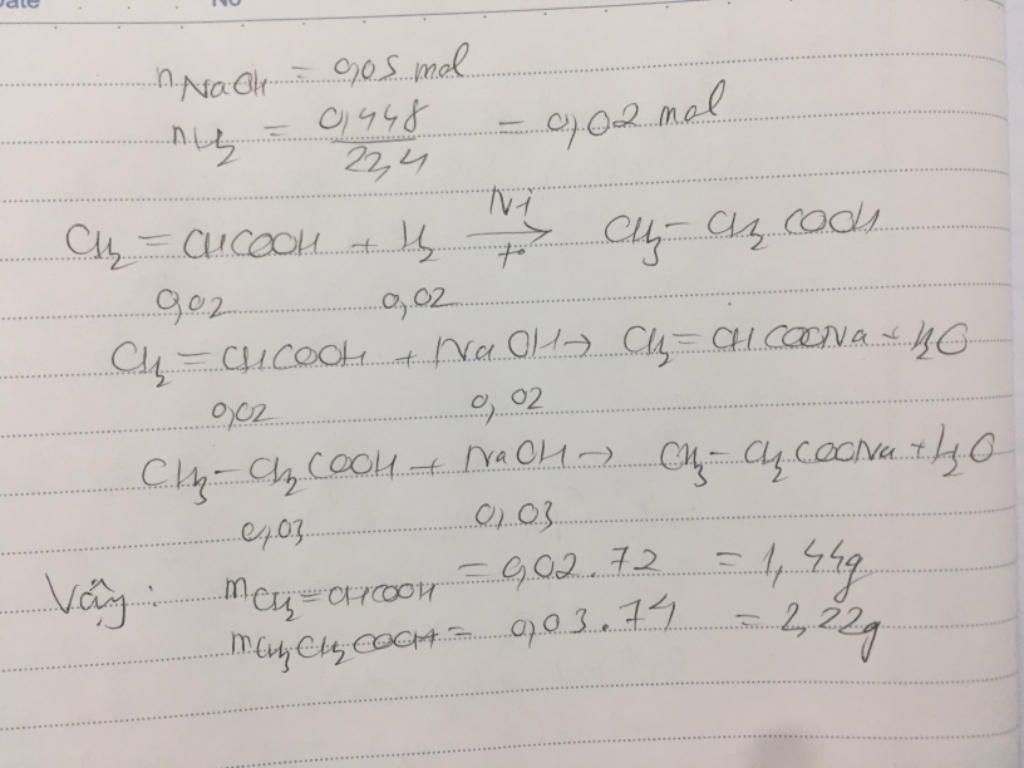 Date No
nNaOH = 0,05 mol
nH2 = 0,448/22,4 = 0,02 mol
CH2 = CHCOOH + H2 Ni→t° CH3 - CH2 COOH
0,02 0,02
CH2 = CHCOOH + NaOH → CH2 = CHCOONa + H2O
0,02 0,02
CH3 - CH2 COOH + NaOH → CH3 - CH2 COONa + H2O
0,03 0,03
Vậy : mCH2=CHCOOH = 0,02.72 = 1,44g
mCH3CH2COOH = 0,03.74 = 2,22g